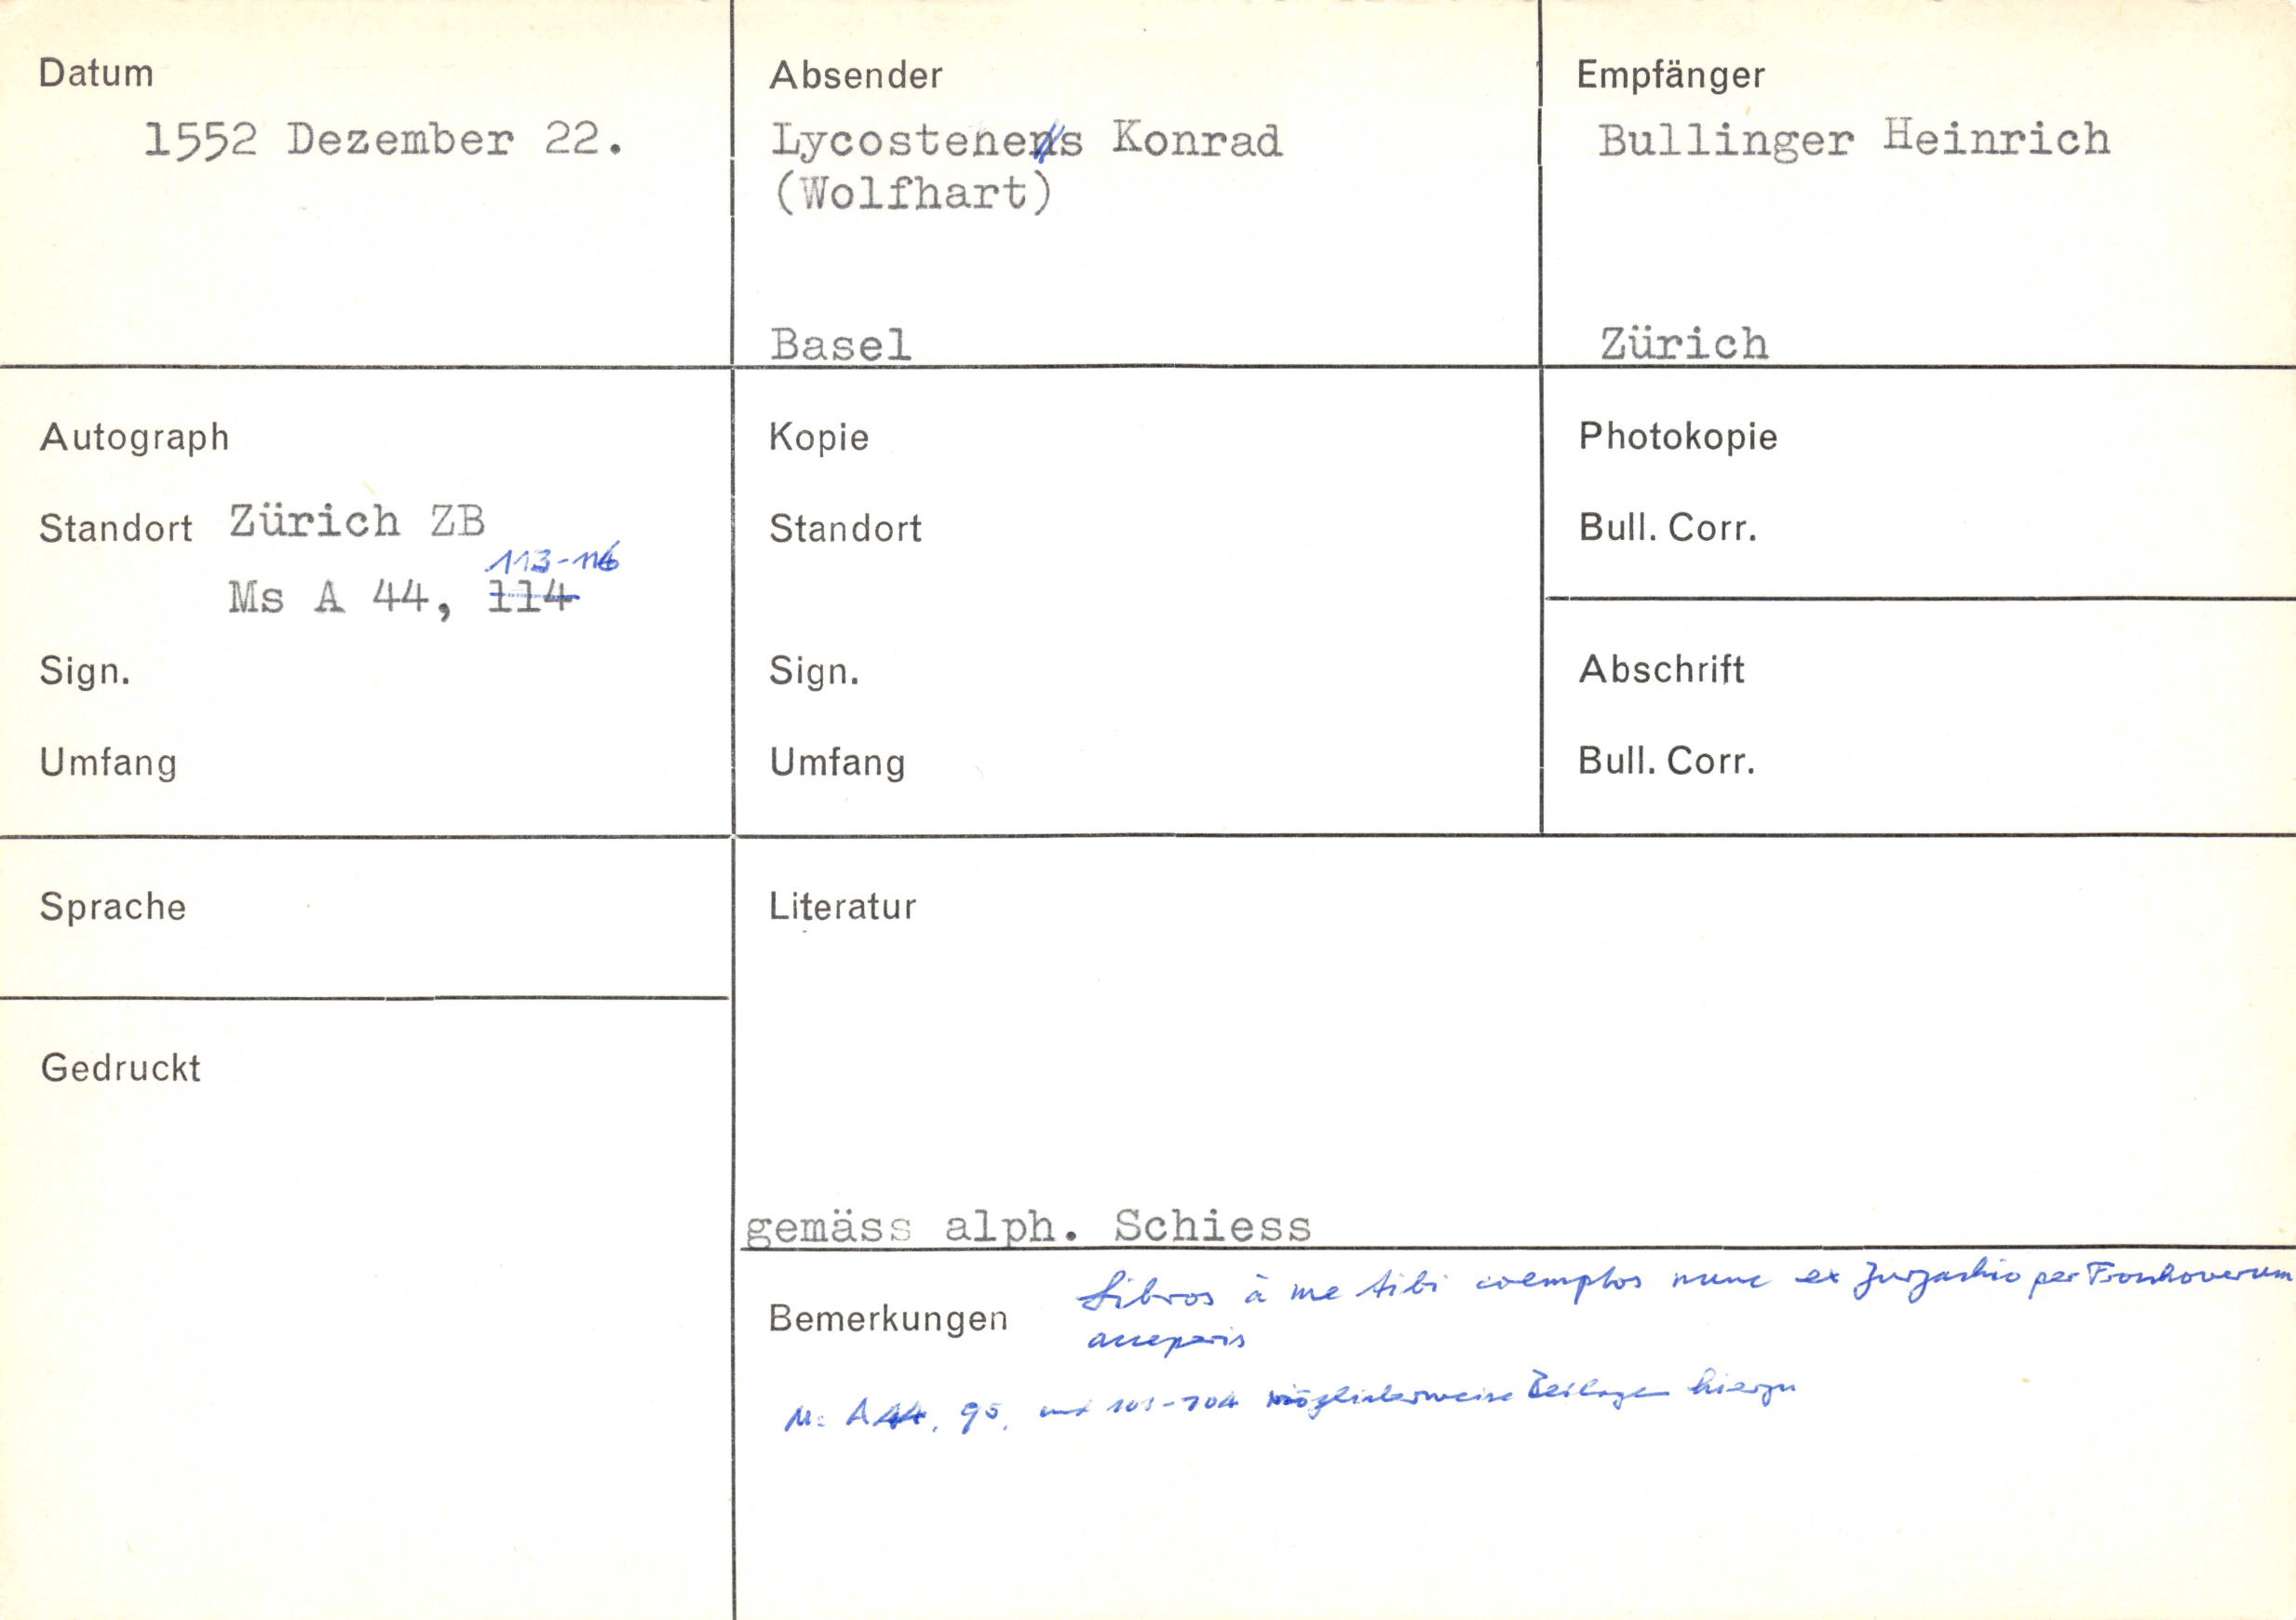 Datum
1552 Dezember 22.
Absender
Lycostenens Konrad
(Wolfhart)
Basel
Empfänger
Bullinger Heinrich
Zürich
Autograph
Standort Zürich ZB
113-116
Ms A 44, 114
Sign.
Umfang
Kopie
Standort
Sign.
Umfang
Photokopie
Bull. Corr.
Abschrift
Bull. Corr.
Sprache
Gedruckt
Literatur
gemäss alph. Schiess
Bemerkungen
Libros à me tibi coemptos nunc ex Zurzachio per Froschoverum
acceperis
Ms A 44, 95, und 101-104 möglicherweise Beilagen hierzu